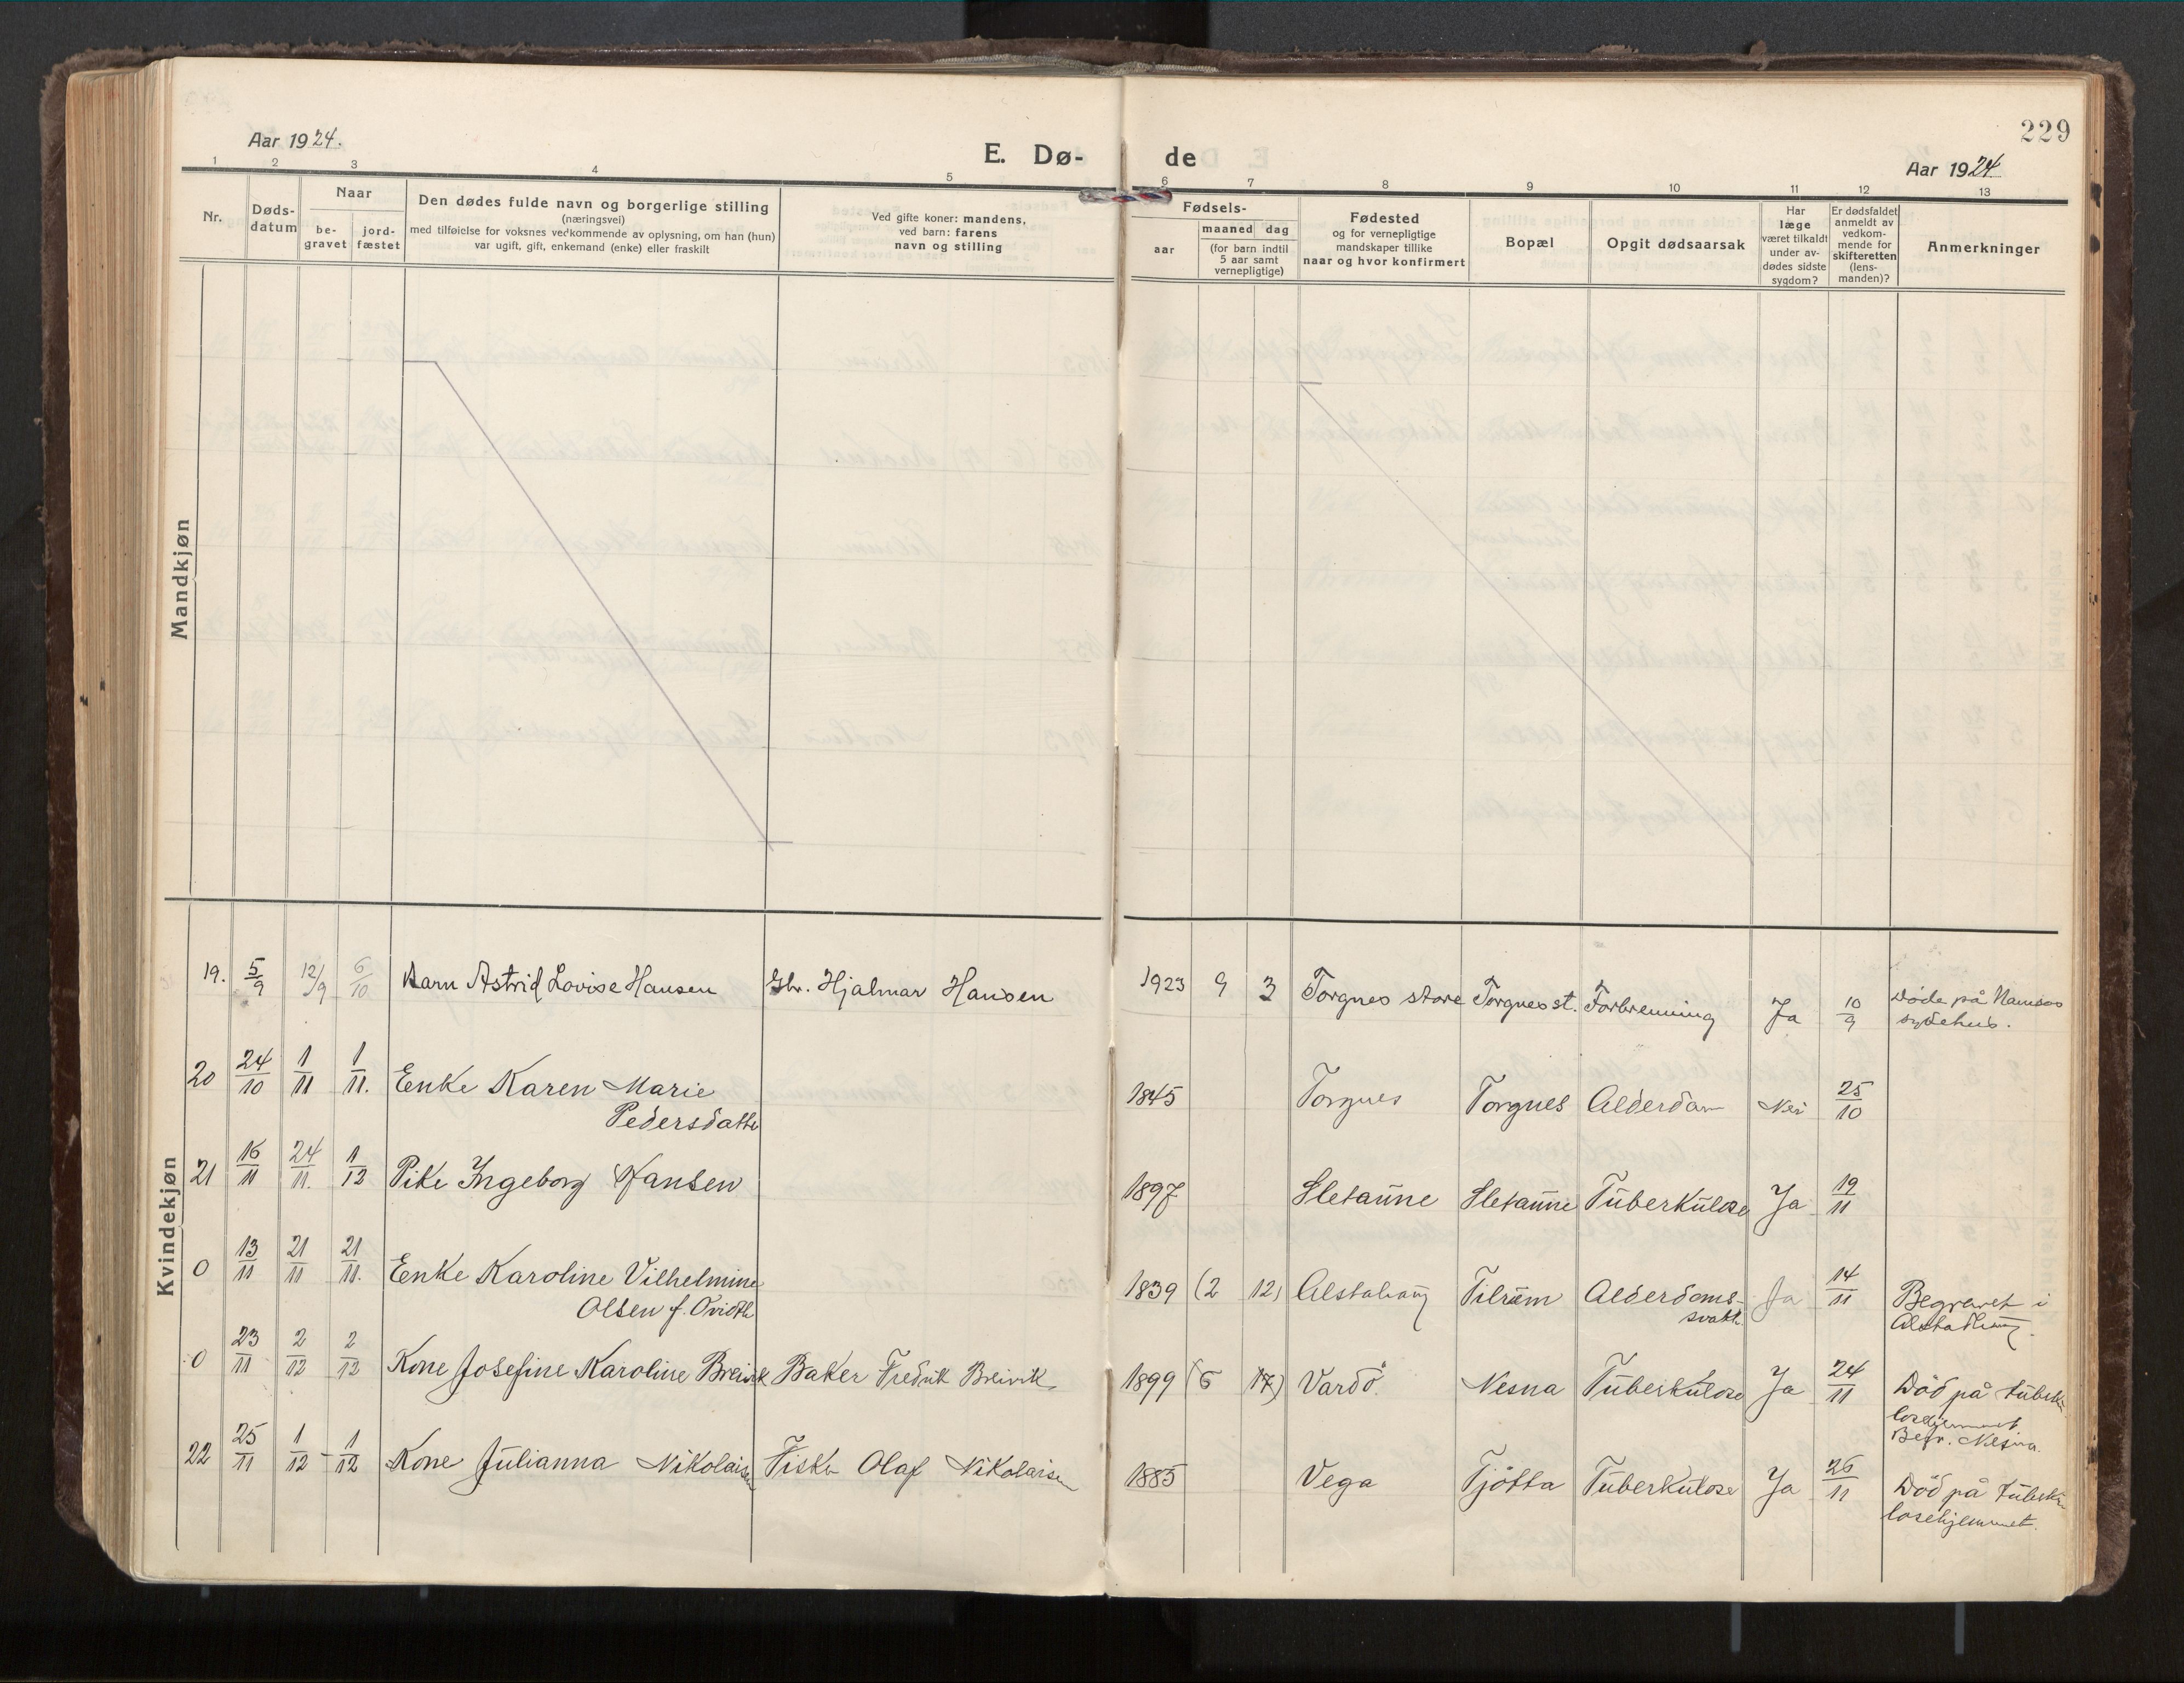 229
Aar 1924.
E. Dø-
de
Aar 1924
1 2 3 4 5 6 7 8 9 10 11 12 13
Nr.
Døds-
datum
Naar
be-
gravet
jord-
fæstet
Den dødes fulde navn og borgerlige stilling
(næringsvei)
med tilføielse for voksnes vedkommende av oplysning, om han (hun)
var ugift, gift, enkemand (enke) eller fraskilt
Ved gifte koner: mandens,
ved barn: farens
navn og stilling
Fødsels-
aar
maaned dag
(for barn indtil
5 aar samt
vernepligtige)
Fødested
og for vernepligtige
mandskaper tillike
naar og hvor konfirmert
Bopæl
Opgit dødsaarsak
Har
læge
været tilkaldt
under av-
dødes sidste
sygdom?
Er dødsfaldet
anmeldt av
vedkom-
mende for
skifteretten
(lens-
manden)?
Anmerkninger
Mandkjøn
Kvindekjøn
19. 5/9 12/9 6/10 Barn Astrid Lovise Hansen Gbr. Hjalmar Hansen 1923 9 3 Torgnes store Torgnes st. Forbrenning Ja 10/9 Døde på Namsos
sykehus.
20 24/10 1/11 1/11. Enke Karen Marie
Pedersdatter 1845 Torgnes Torgnes Alderdom Nei 25/10
21 16/11 24/11. 1/12 Pike Ingeborg Hansen 1897 Sletaune Sletaune Tuberkulose Ja 19/11
0 13/11 21/11 21/11. Enke Karoline Vilhelmine
Olsen f. 1839 (2 12) Alstahaug Tilrem Alderdoms-
svakh. Ja 14/11 Begravet i
Alstadhaug.
0 23/11 2/12 2/12 Kone Josefine Karoline Breivik Baker Fredrik Breivik 1899 (6 17) Vardö. Nesna Tuberkulose Ja 24/11 Död på tuberku-
losehjemmet
Begr. Nesna.
22 25/11 1/12 - 1/12 Kone Julianna Nikolaisen Fisker Olaf Nikolaisen 1885 Vega Tjötta Tuberkulose Ja 26/11 Död på tuberku-
losehjemmet.